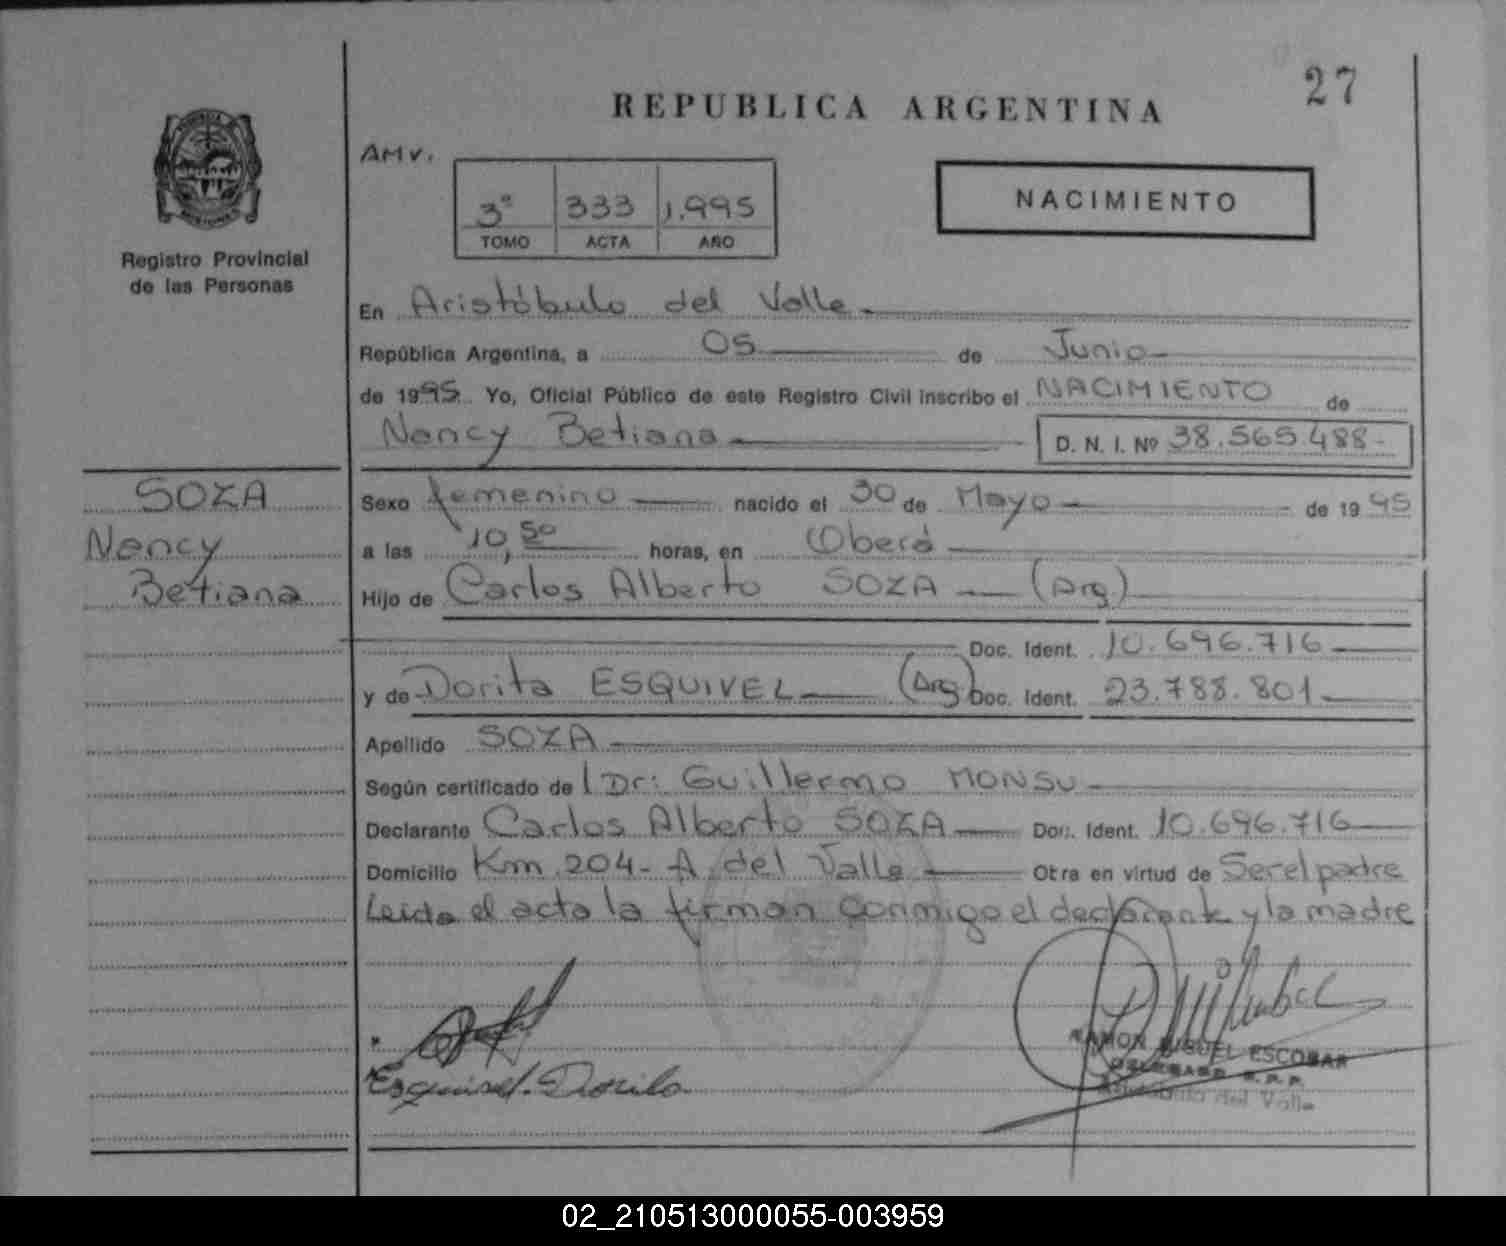 27
REPUBLICA ARGENTINA
AMV.
3° 333 1.995
TOMO ACTA AÑO
NACIMIENTO
Registro Provincial
de las Personas
En Aristóbulo del Valle
República Argentina, a 05 de Junio
de 1995 Yo, Oficial Público de este Registro Civil inscribo el NACIMIENTO de
Nancy Betiana D. N. I. Nº 38.565.488-
SOZA
Nancy
Betiana
Sexo femenino nacido el 30 de Mayo de 1995
a las 10,50 horas, en Oberá
Hijo de Carlos Alberto SOZA (Arg)
Doc. Ident. 10.696.716
y de Dorita ESQUIVEL (Arg) Doc. Ident. 23.788.801
Apellido SOZA
Según certificado de Dr: Guillermo MONSU
Declarante Carlos Alberto SOZA Doc. Ident. 10.696.716
Domicilio Km 204- A. del Valle Obra en virtud de Ser el padre
Leida el acta la firman conmigo el declarante y la madre
Esquivel. Dorila
RAMON MIGUEL ESCOBAR
DELEGADO R.P.P.
Aristobulo del Valle
02_210513000055-003959